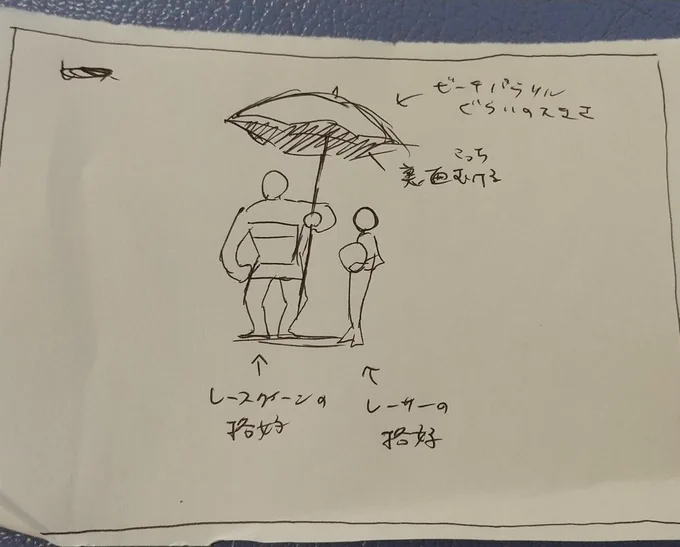 ビーチパラソル
ぐらいの大きさ
こっち
裏面むける
レースクイーンの
格好
レーサーの
格好